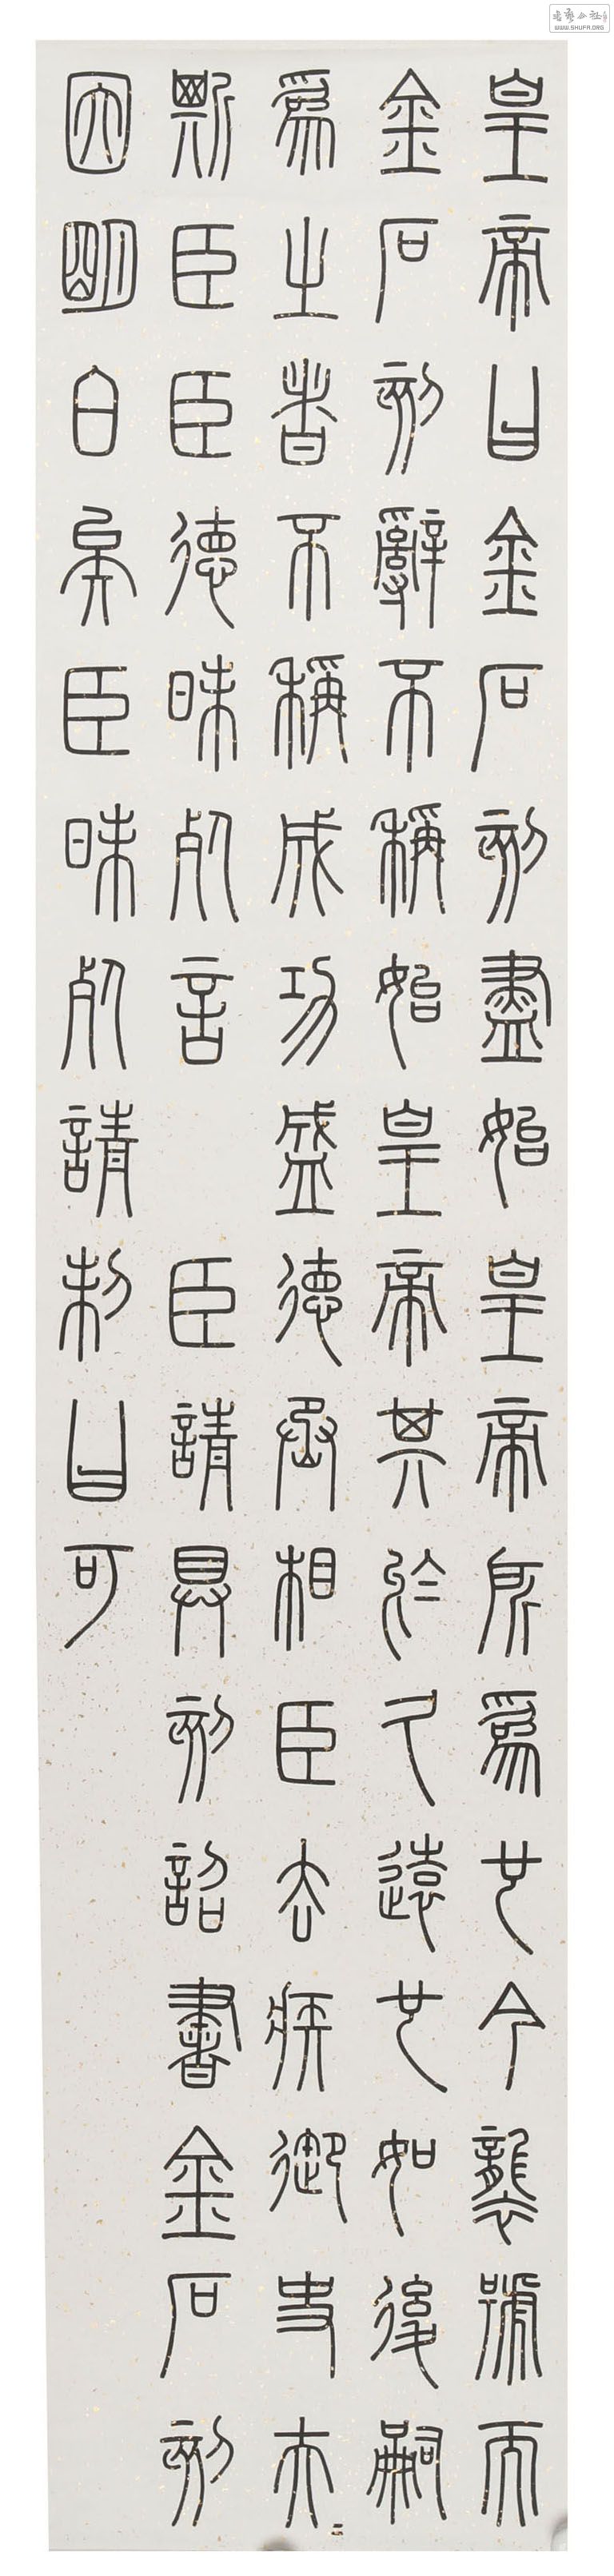 皇帝曰金石刻盡始皇帝所爲也今襲號而
金石刻辭不稱始皇帝其於久遠也如後嗣
爲之者不稱成功盛德丞相臣去疾御史夫=
斯臣臣德昧死言 臣請具刻詔書金石刻
因明白矣臣昧死請制曰可
WWW.SHUFA.ORG